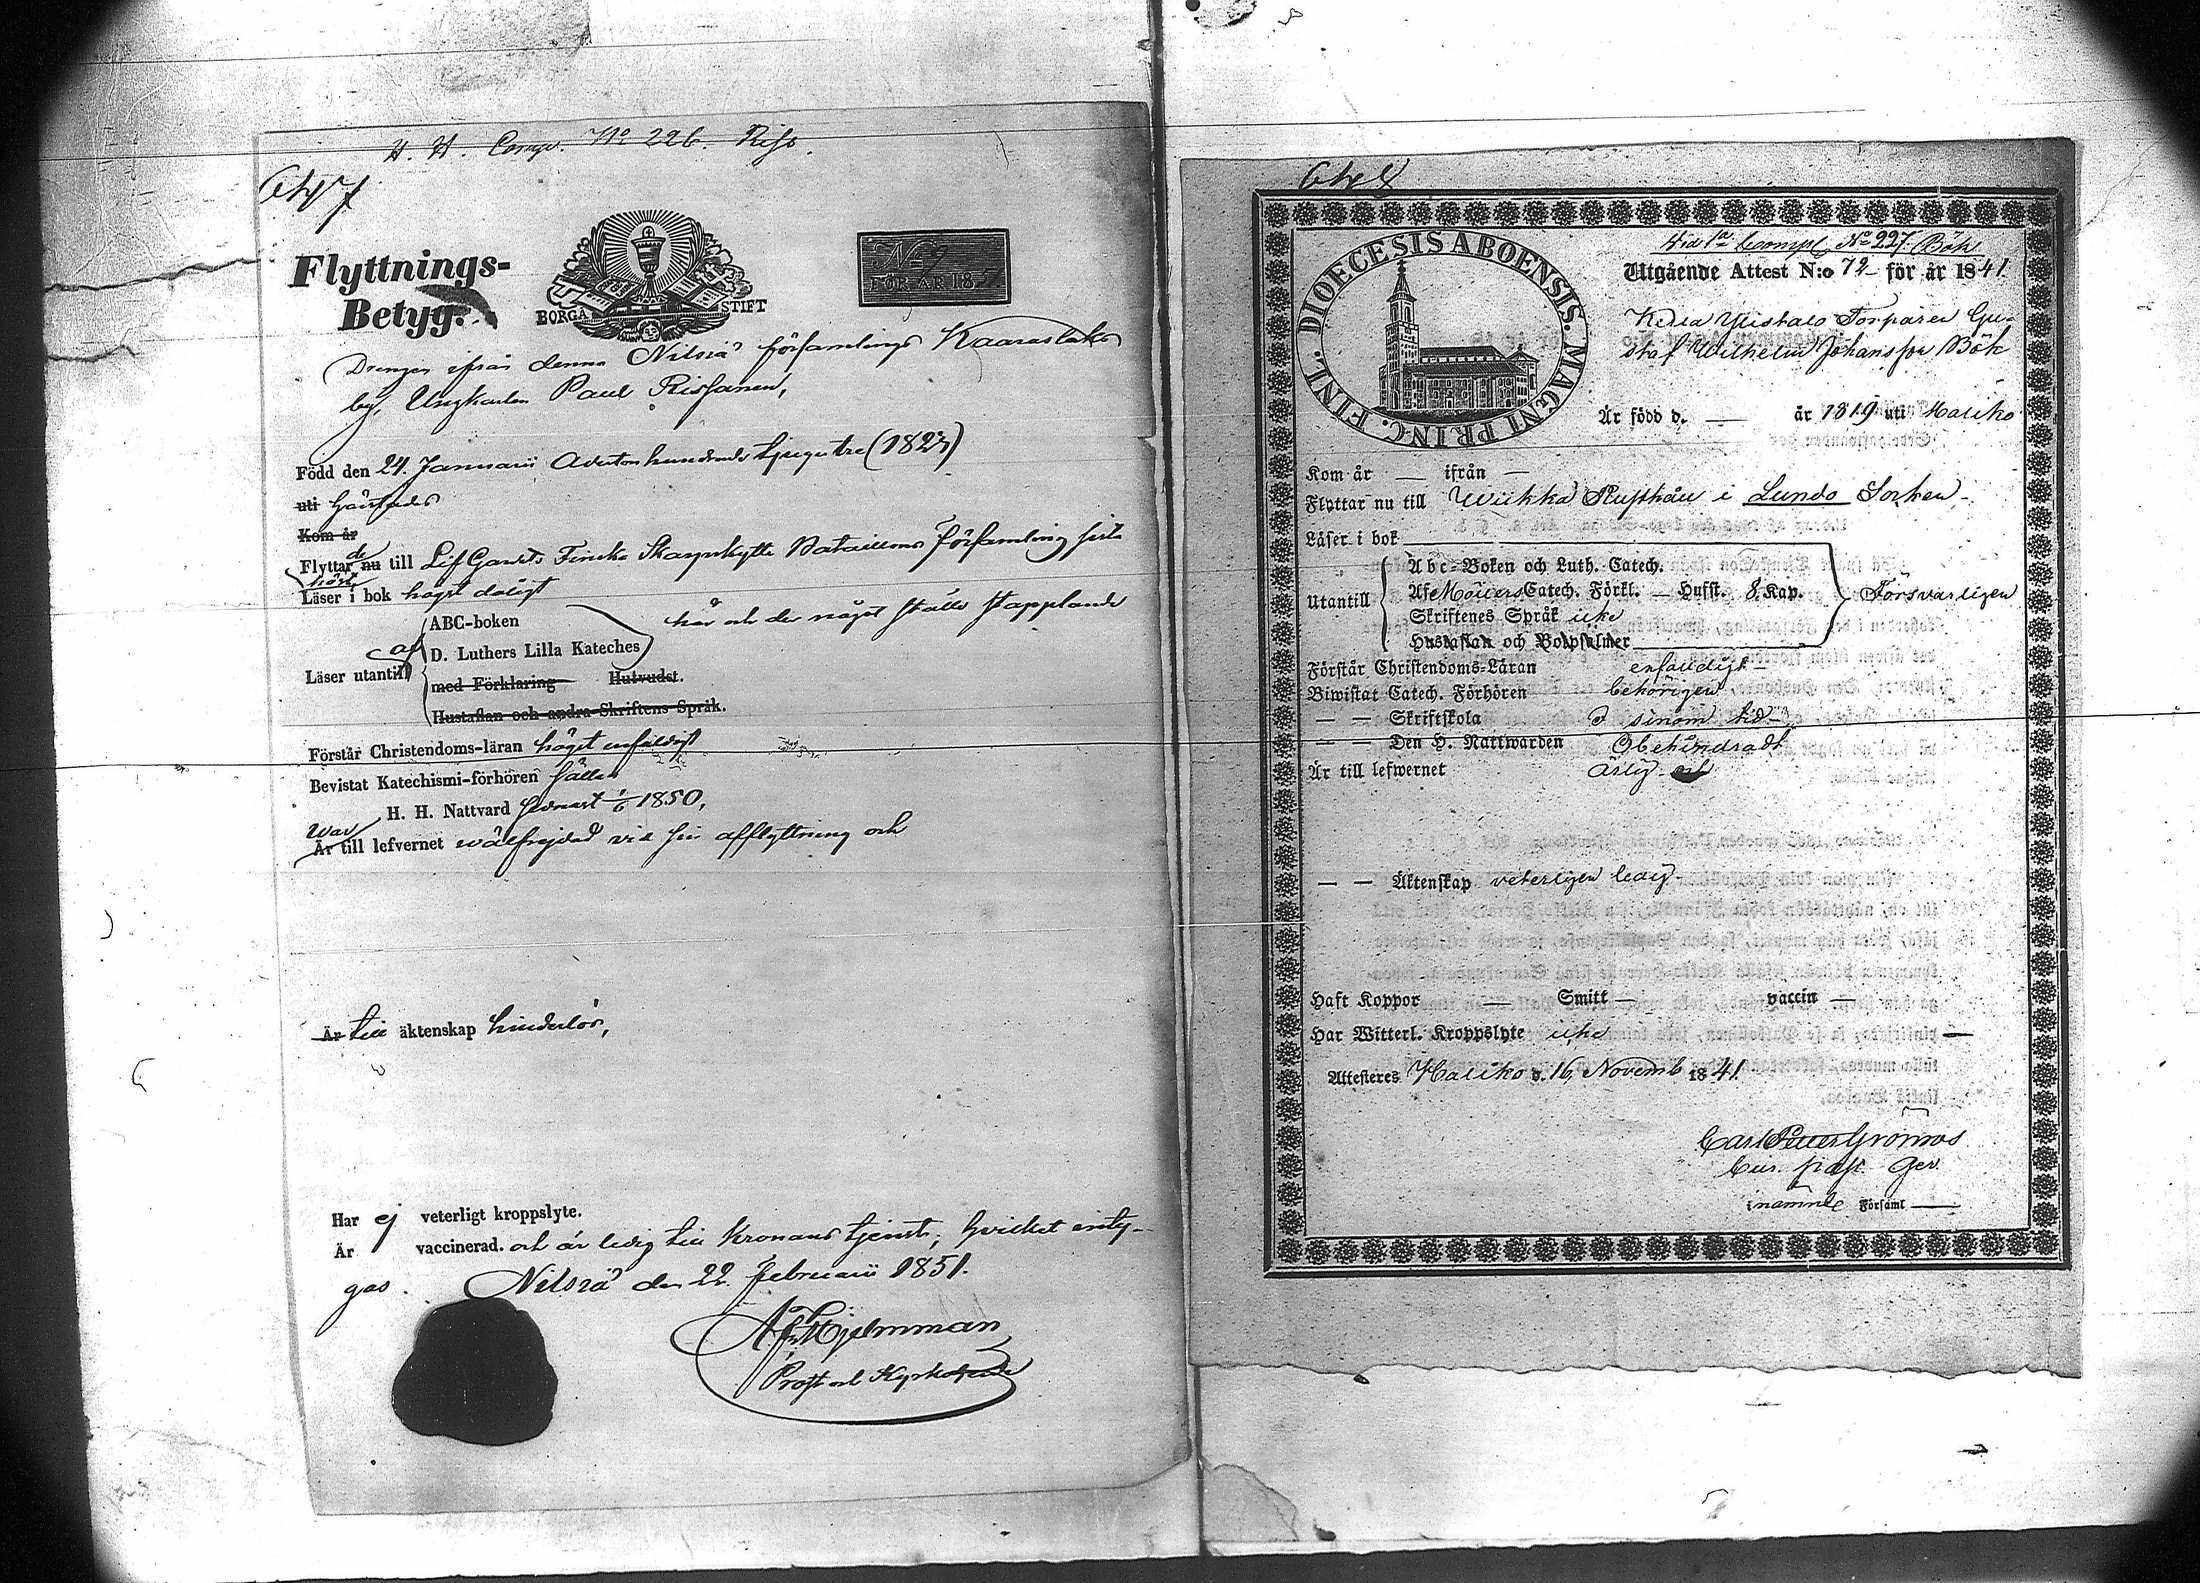 H. H. Comp. No 226. Riss.
6447
Flyttnings-
Betyg.
BORGÅ STIFT
No 9
FÖR ÅR 1851
Drengen ifrån denna Nilsiä församlings Kaaraslaks
by, Ungkarlen Paul Rissanen,
Född den 24. Januarii Adertonhundrade tjugutre (1823)
uti härstädes
Kom år
Flyttar nu till LifGardets Finska Skarpskytte Bataillons församling sista
höst,
Läser i bok högst dåligt
ABC-boken
här och der något ställe stapplande
af
D. Luthers Lilla Kateches
Läser utantill
med Förklaring Hufvudst.
Hustaflan och andra Skriftens Språk.
Förstår Christendoms-läran högst enfäldigt
Bevistat Katechismi-förhören sällan
H. H. Nattvard sednast 1/6 1850,
War
Är till lefvernet wälfrejdad vid sin afflyttning och
Är till äktenskap hinderlös,
Har ej veterligt kroppslyte.
Är vaccinerad. och är ledig till Kronans tjenst, hvilket inty-
gas. Nilsiä den 22. Februarii 1851.
Hjelmman
Prost och Kyrkoherde
6448
Lid 1a Comp No 227. Bök
Utgående Attest N:o 72 för år 1841
Torparen Gu-
staf Wilhelm Johansson Böök
DIOECESIS ABOENSIS. MAGNI PRINC. FINL.
Är född d. — år 1819 uti Haliko
Kom år — ifrån —
Flyttar nu till Wiikka Rusthåll i Lundo Socken
Läser i bok
Abc-Boken och Luth. Catech.
Utantill Af Möllers Catech. Förkl. — Hufst. 8 Kap. Försvarligen
Skriftenes Språk icke
Hustaflan och Botpsalmer
Förstår Christendoms-Läran enfaldigt
Biwistat Catech. Förhören behörigen
— — Skriftskola i sinom tid
— — Den H. Nattwarden Obehindradt
Är till lefwernet ärlig
— — Äktenskap veterligen ledig
Haft Koppor — Smitt — vaccin —
Har Witterl. Kroppslyte icke
Attesteres Haliko d. 16 Novemb 1841.
Carl Grönroos
Cur. past. Ger.
inämnde Församl